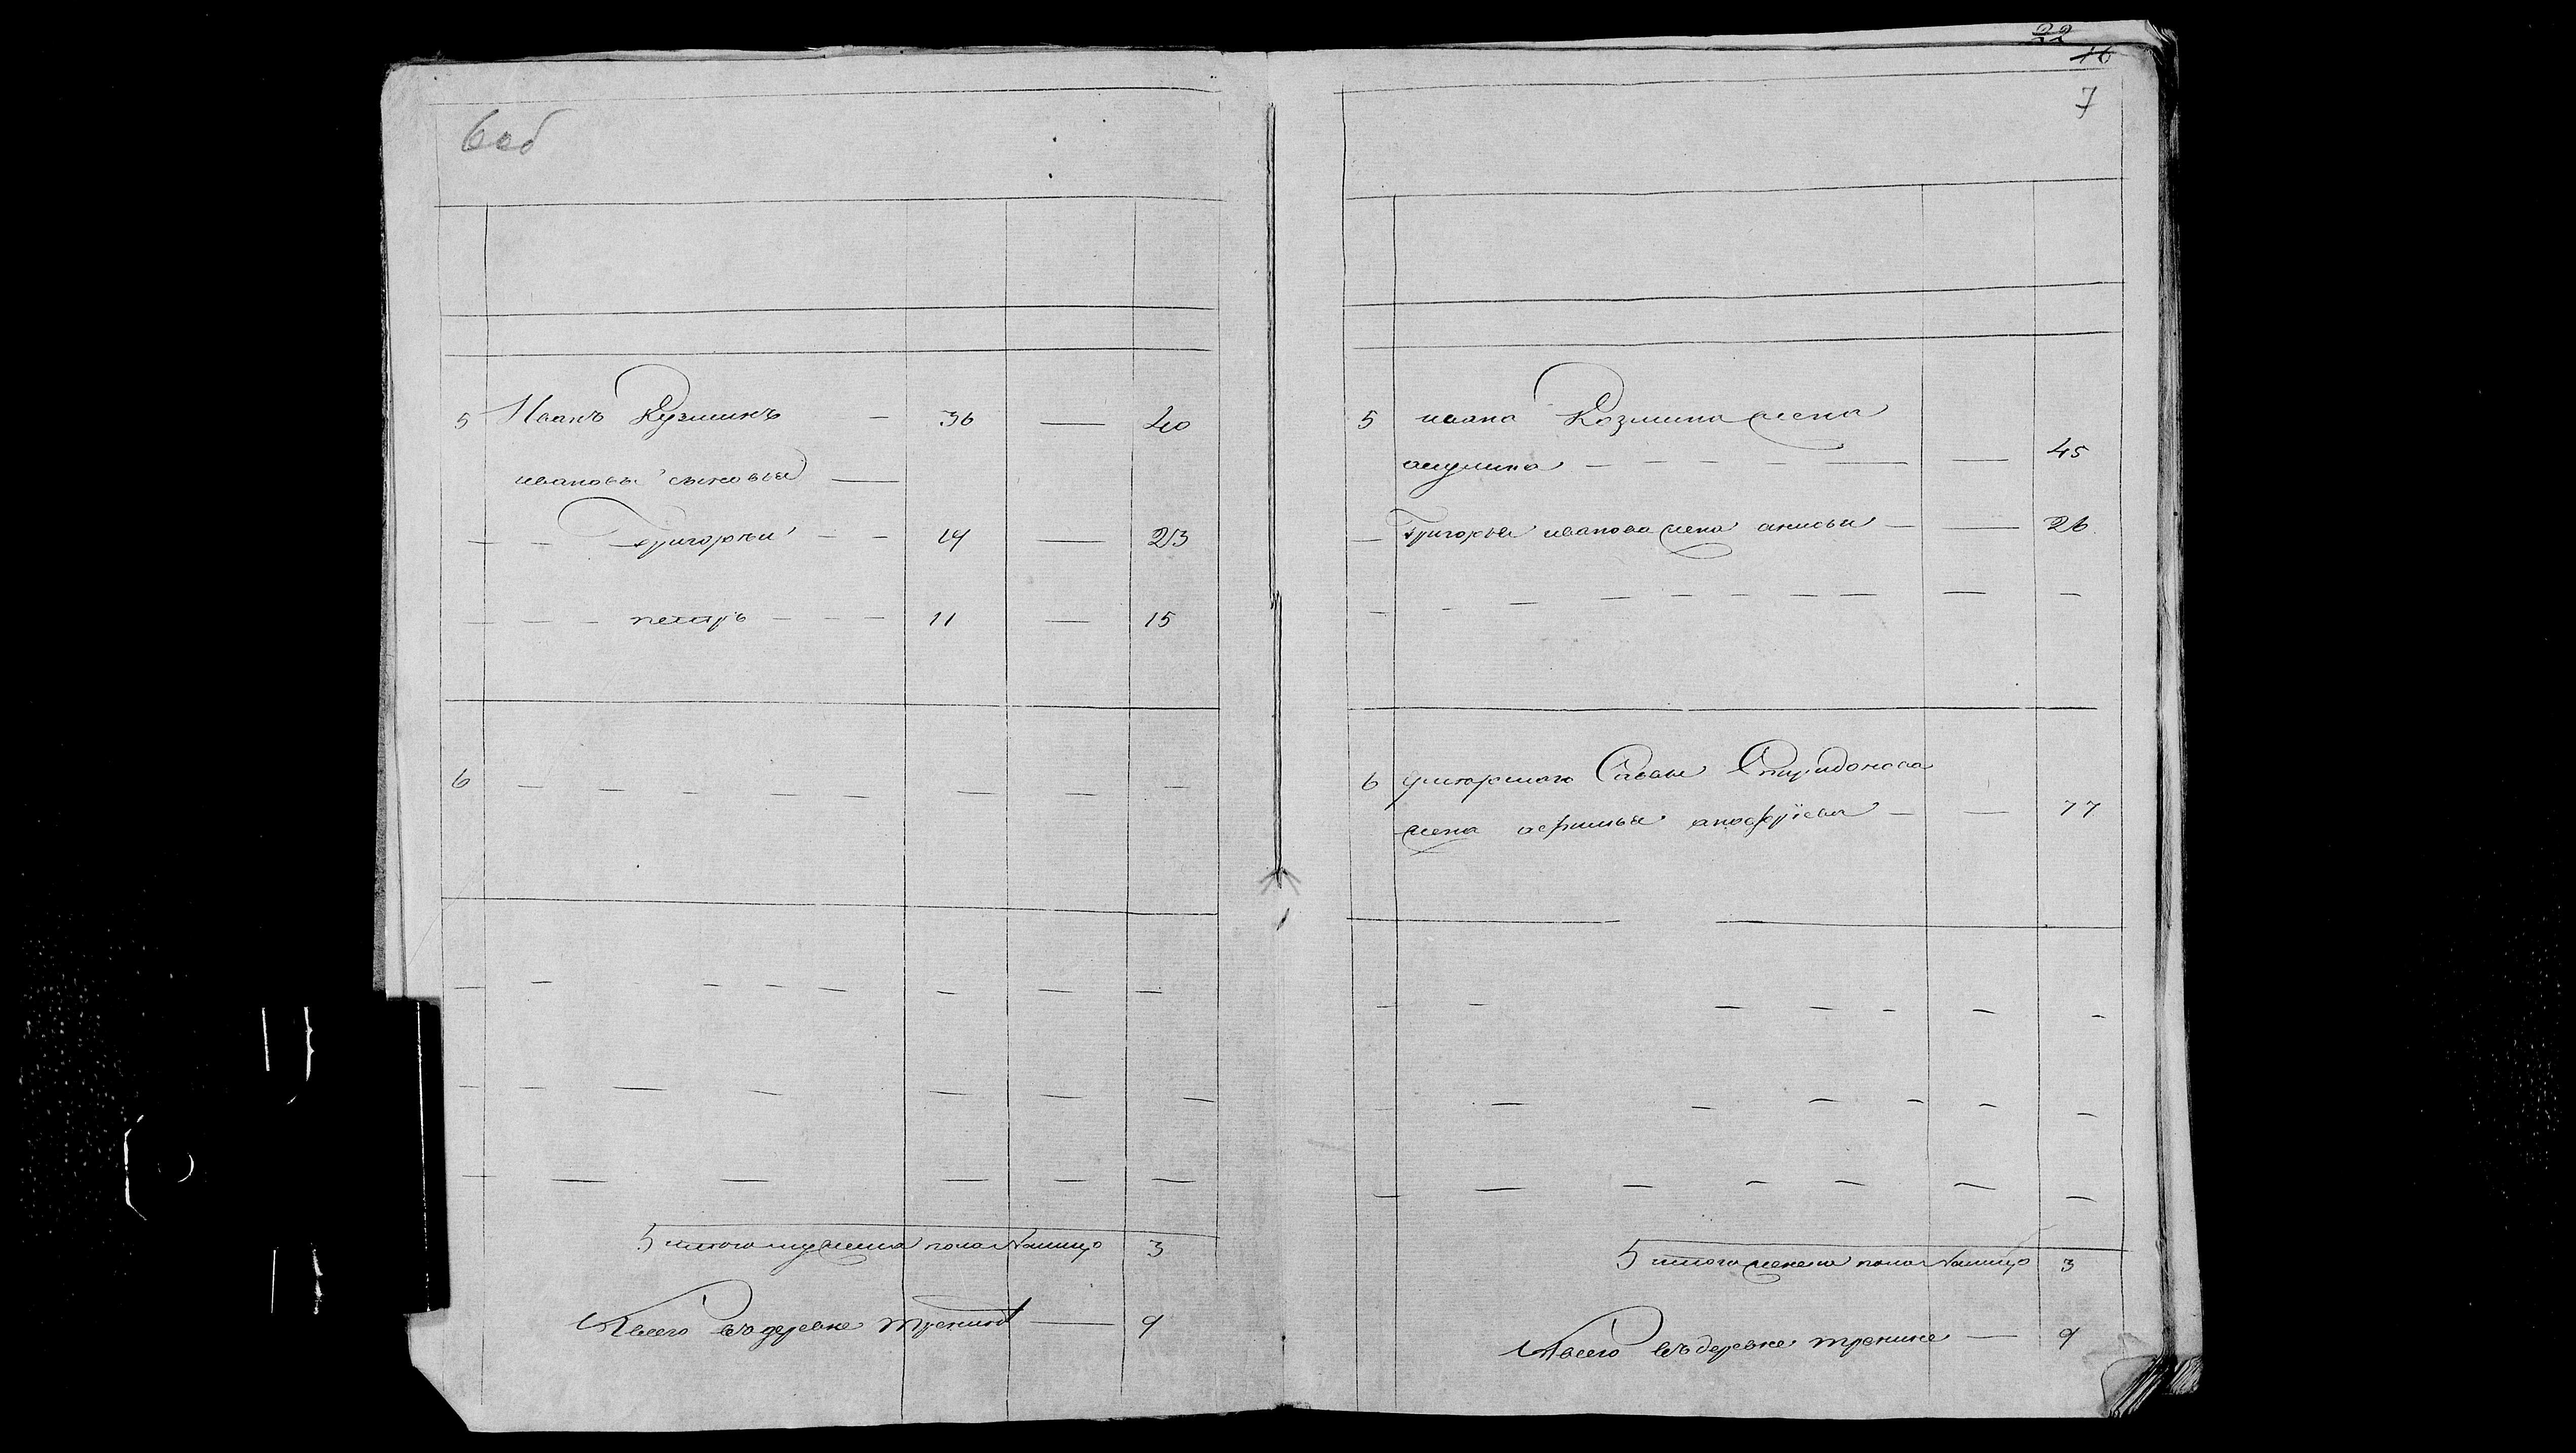 6 об
5 Иванъ Кузминъ — 36 — 40
ивановы сыновья —
— — Григорей — — 19 — 23
— — — петръ — — — 11 — 15
6 — — — — — — — —
— — — — — — — —
— — — — — — —
— — — — — —
итого мужеска пола налицо 3
Авсего въ деревне тренине — 9
22
16
7
5 ивана Козмина жена
акулина — — — — — — 45
— Григорья иванова жена анисья — — 26
— — — — — — — — — —
6 умоершаго Савы Спиридонова
жена офимья — — 77
— — — — — — —
— — — — — — —
— — — — — — —
итого женска пола налицо 3
Авсего въ деревне тренине — 9